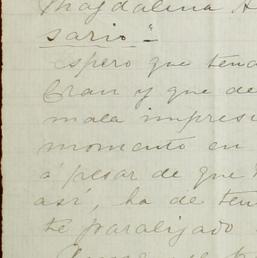 Magdalina A
sario"
Espero que tend
Gran y que de
mala impresi
momento en
á pesar de que
así, ha de ten
te paralizado